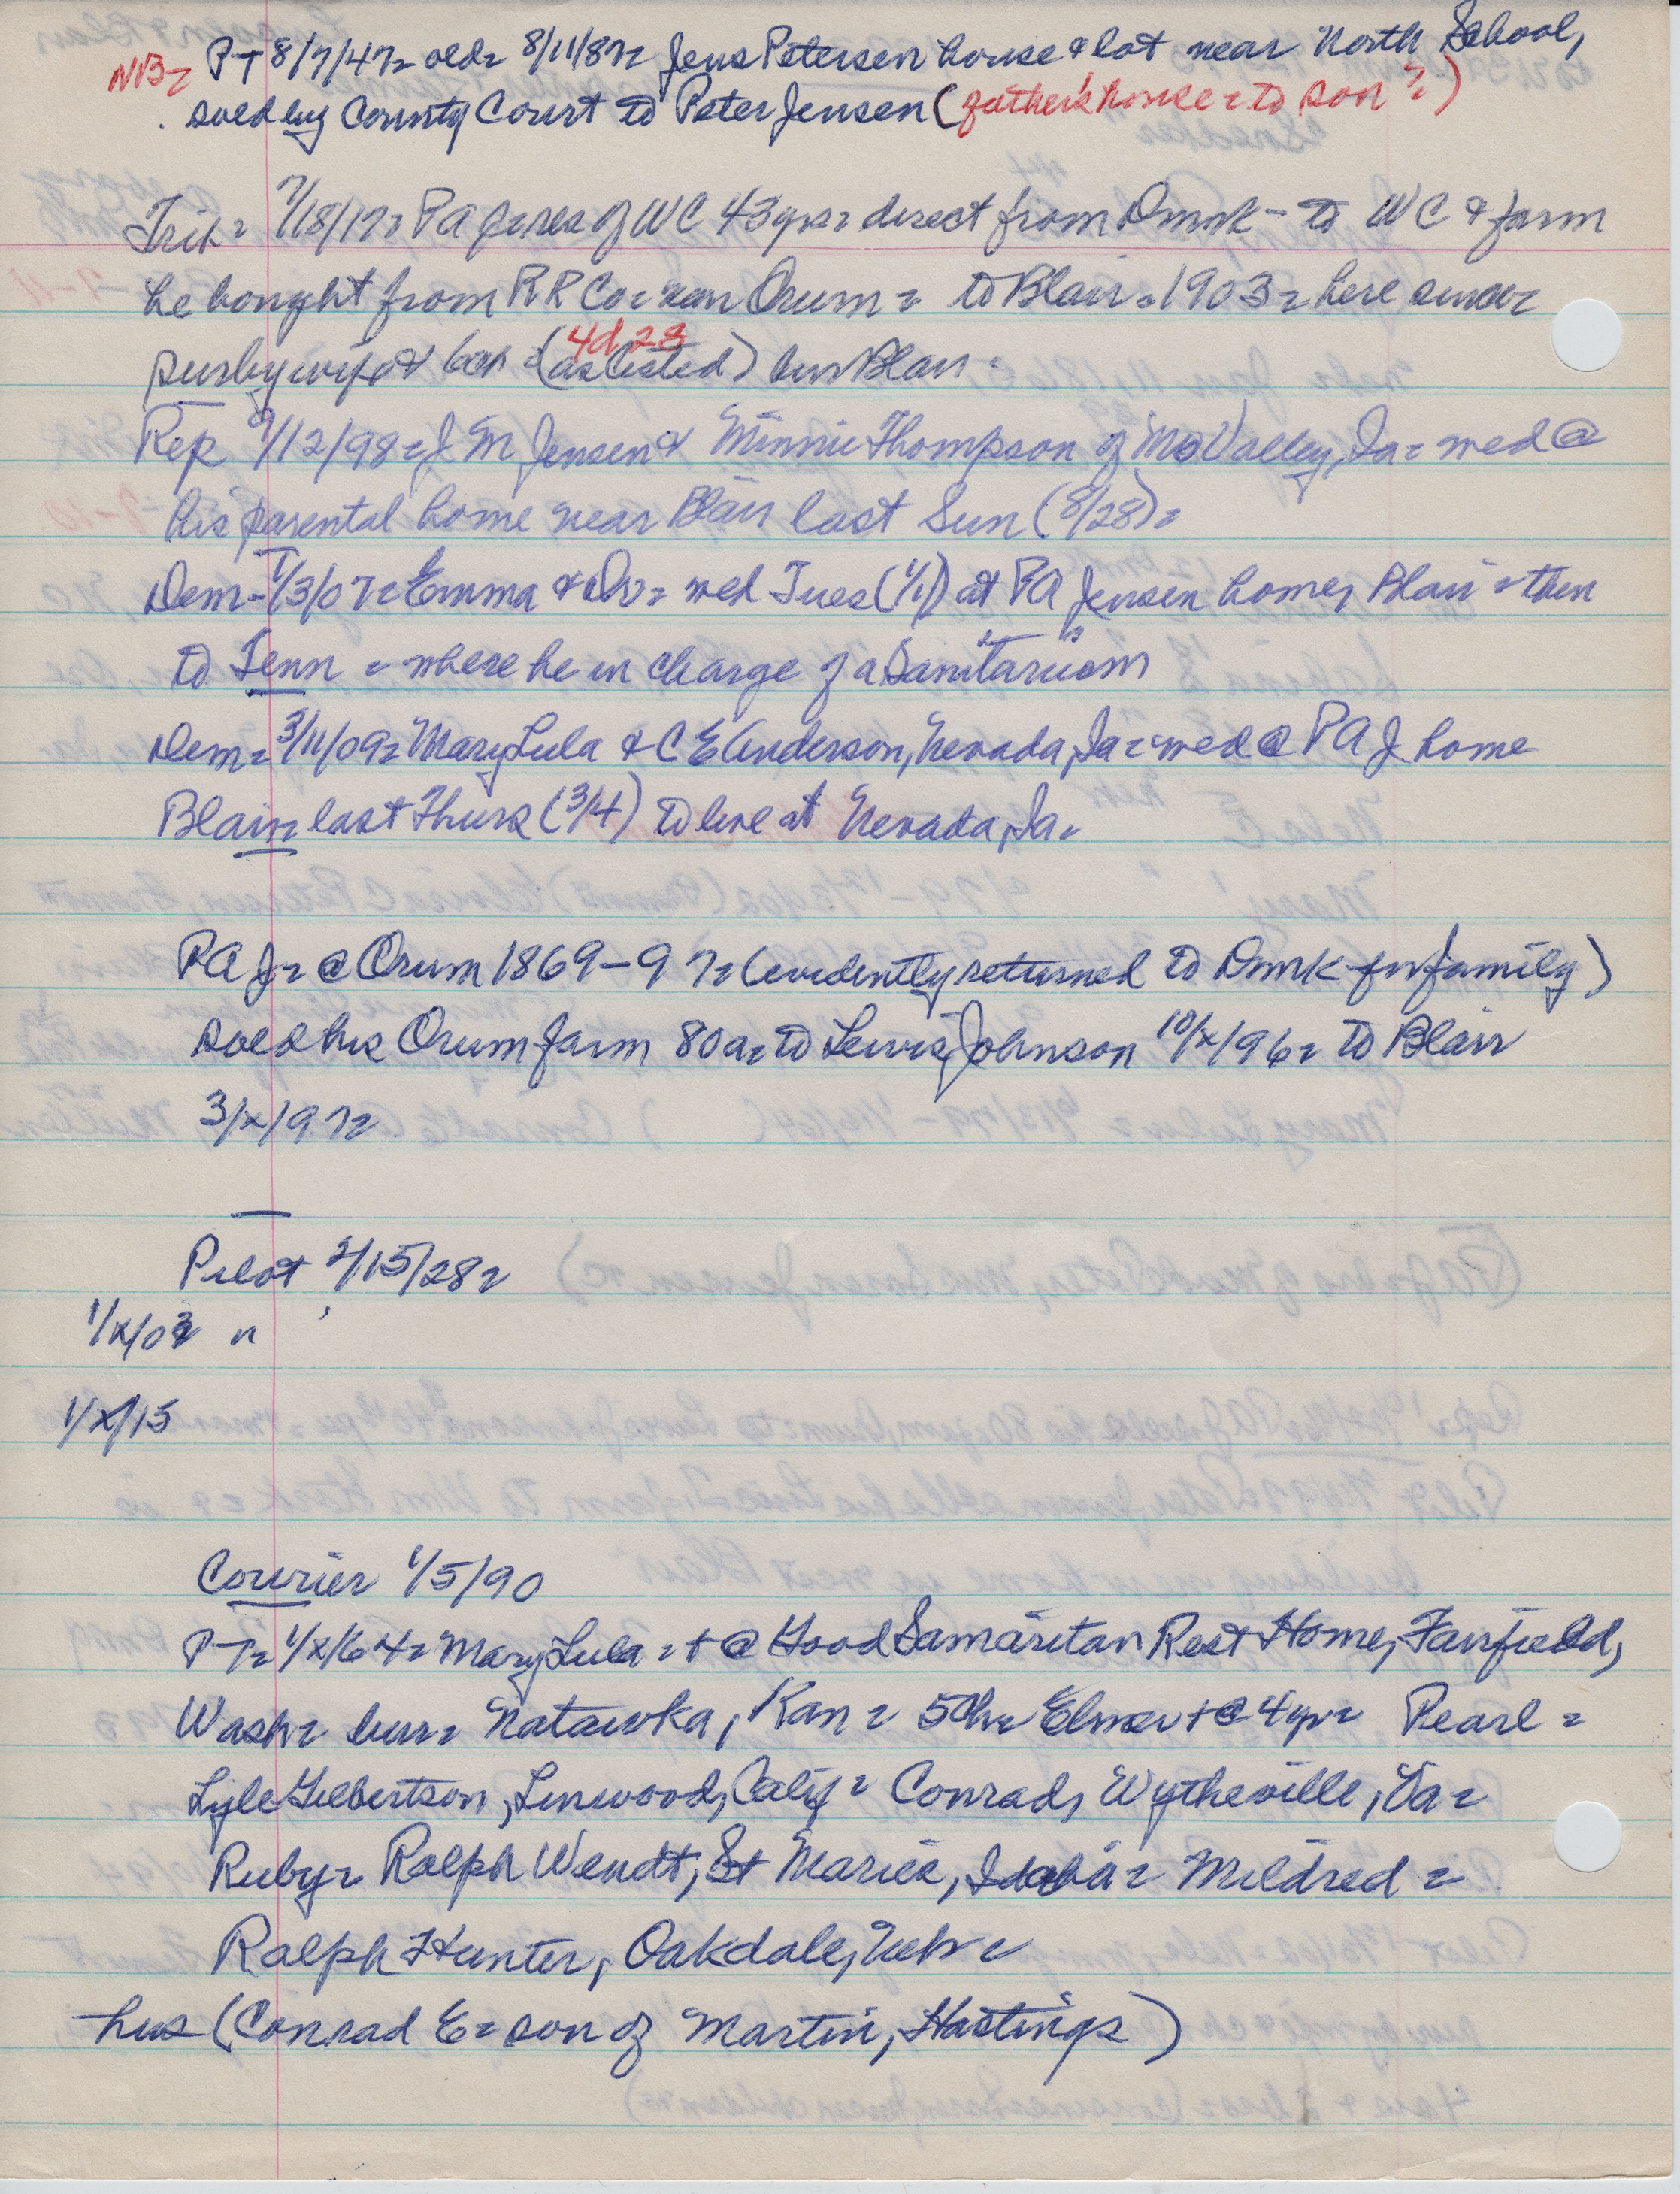 NB= PT 8/7/47= old= 8/11/87= Jens Petersen house & lot near North School,
sold by County Court to Peter Jensen (father's house = to son?)
Trib= 7/18/17= PA J= res of WC 43 yrs= direct from Dmrk - to WC & farm
he bought from RR Co= near Orum= to Blair= 1903= here since=
4d 2s
surby wife & 6ch= (as listed) bur Blair=
Rep 9/12/98= J M Jensen & Minnie Thompson of Mo Valley, Ia= wed @
his parental home near Blair last Sun (8/28)=
Dem- 1/3/07= Emma & Dr= wed Tues (1/1) at PA Jensen home, Blair= then
to Tenn = where he in charge of a "Sanitarium"
Dem= 3/11/09= Mary Lula & C E Anderson, Nevada, Ia= wed @ PA J home
Blair= last Thurs (3/4) to live at Nevada, Ia=
PA J= @ Orum 1869-97= (evidently returned to Dmrk for family)
sold his Orum farm 80a= to Lewis Johnson 10/x/96= to Blair
3/x/97=
Pilot 2/15/28=
1/x/03 "
1/x/15
Courier 1/5/90
PT= 1/x/64= Mary Lula= + @ Good Samaritan Rest Home, Fairfield,
Wash= bur= Natawka, Kan= 5Ch= Elmer + @ 4yr= Pearl=
Lyle Gilbertson, Linwood, Calif= Conrad, Wytheville, Va=
Ruby= Ralph Wendt, St Maries, Idaho= Mildred=
Ralph Hunter, Oakdale, Neb=
hus (Conrad E= son of Martin, Hastings)